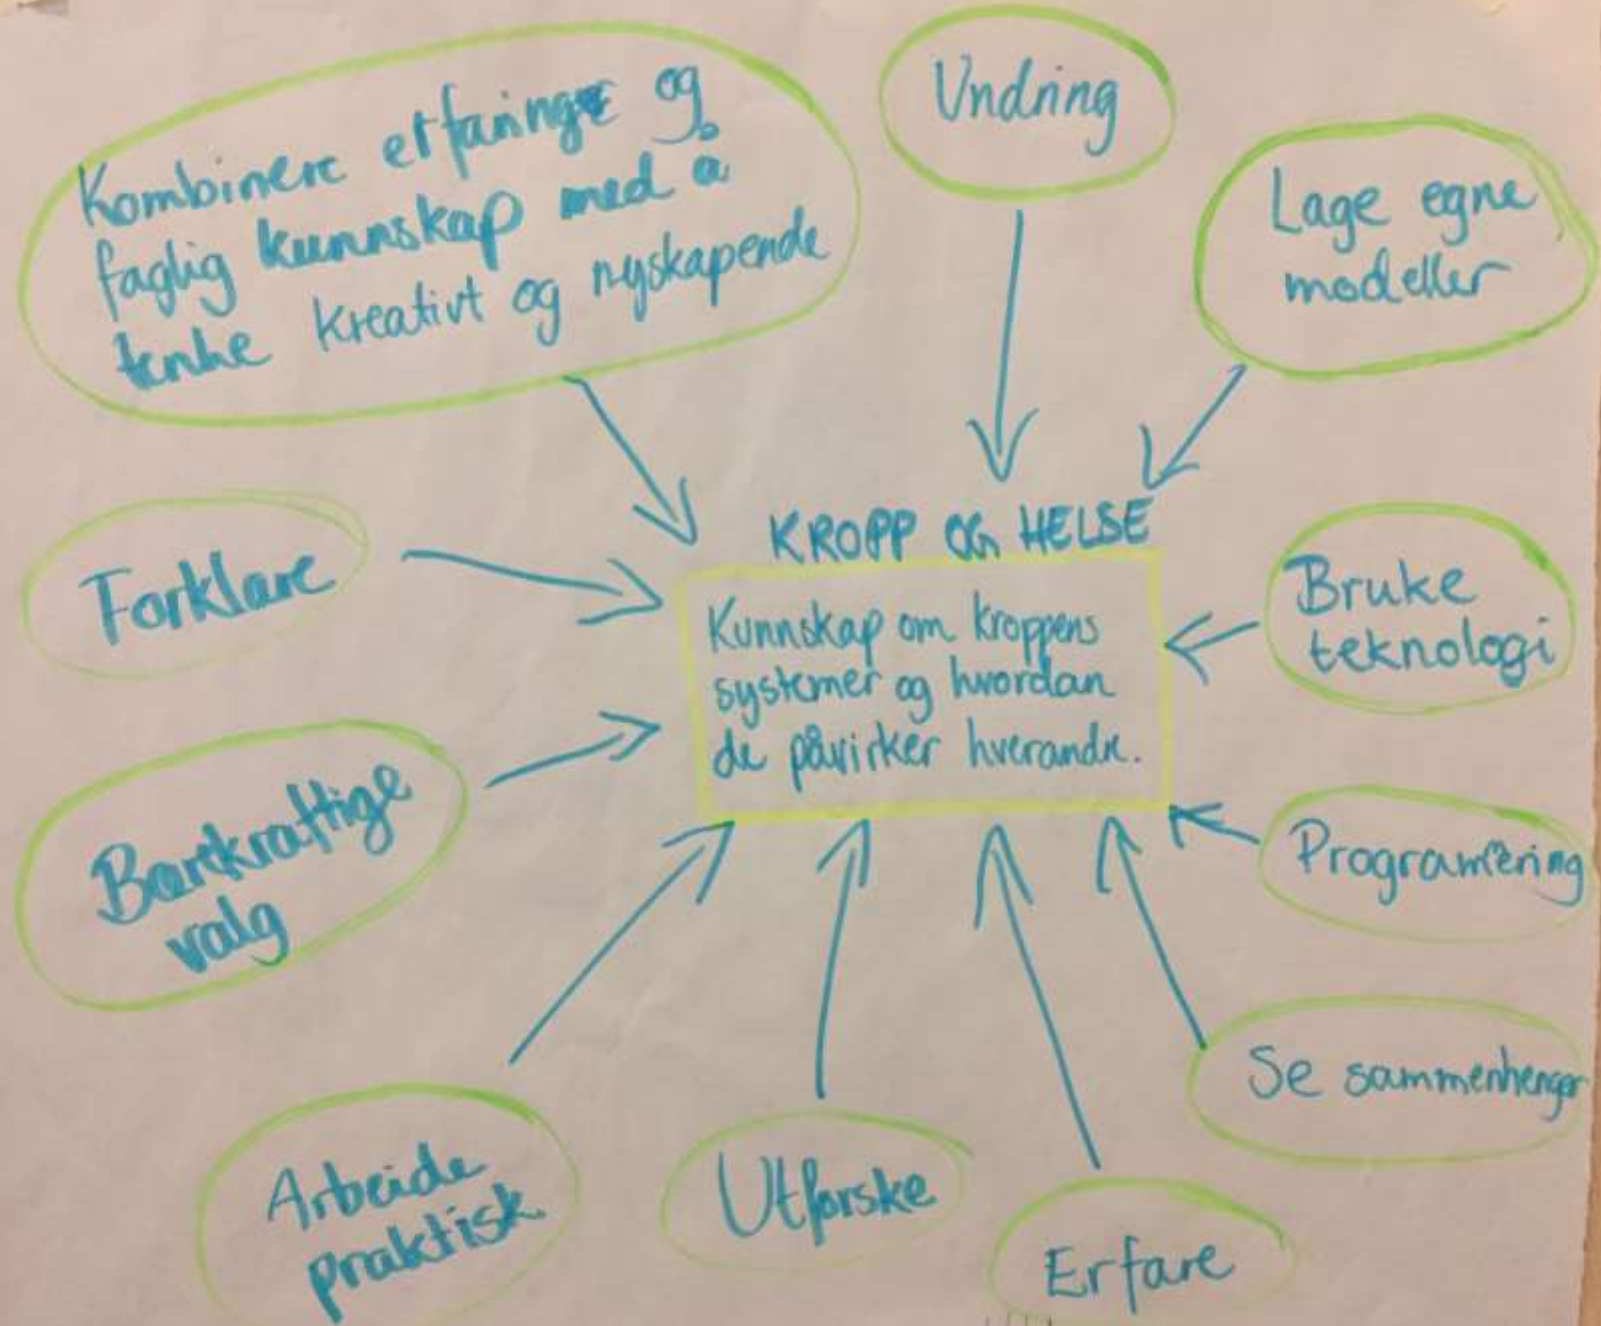 Kombinere erfaringe og
faglig kunnskap med å
tenke kreativt og nyskapende
Undring
Lage egne
modeller
Forklare
KROPP OG HELSE
Kunnskap om kroppens
systemer og hvordan
de påvirker hverandre.
Bruke
teknologi
Bærekraftige
valg
Programering
Se sammenhenger
Arbeide
praktisk
Utforske
Erfare